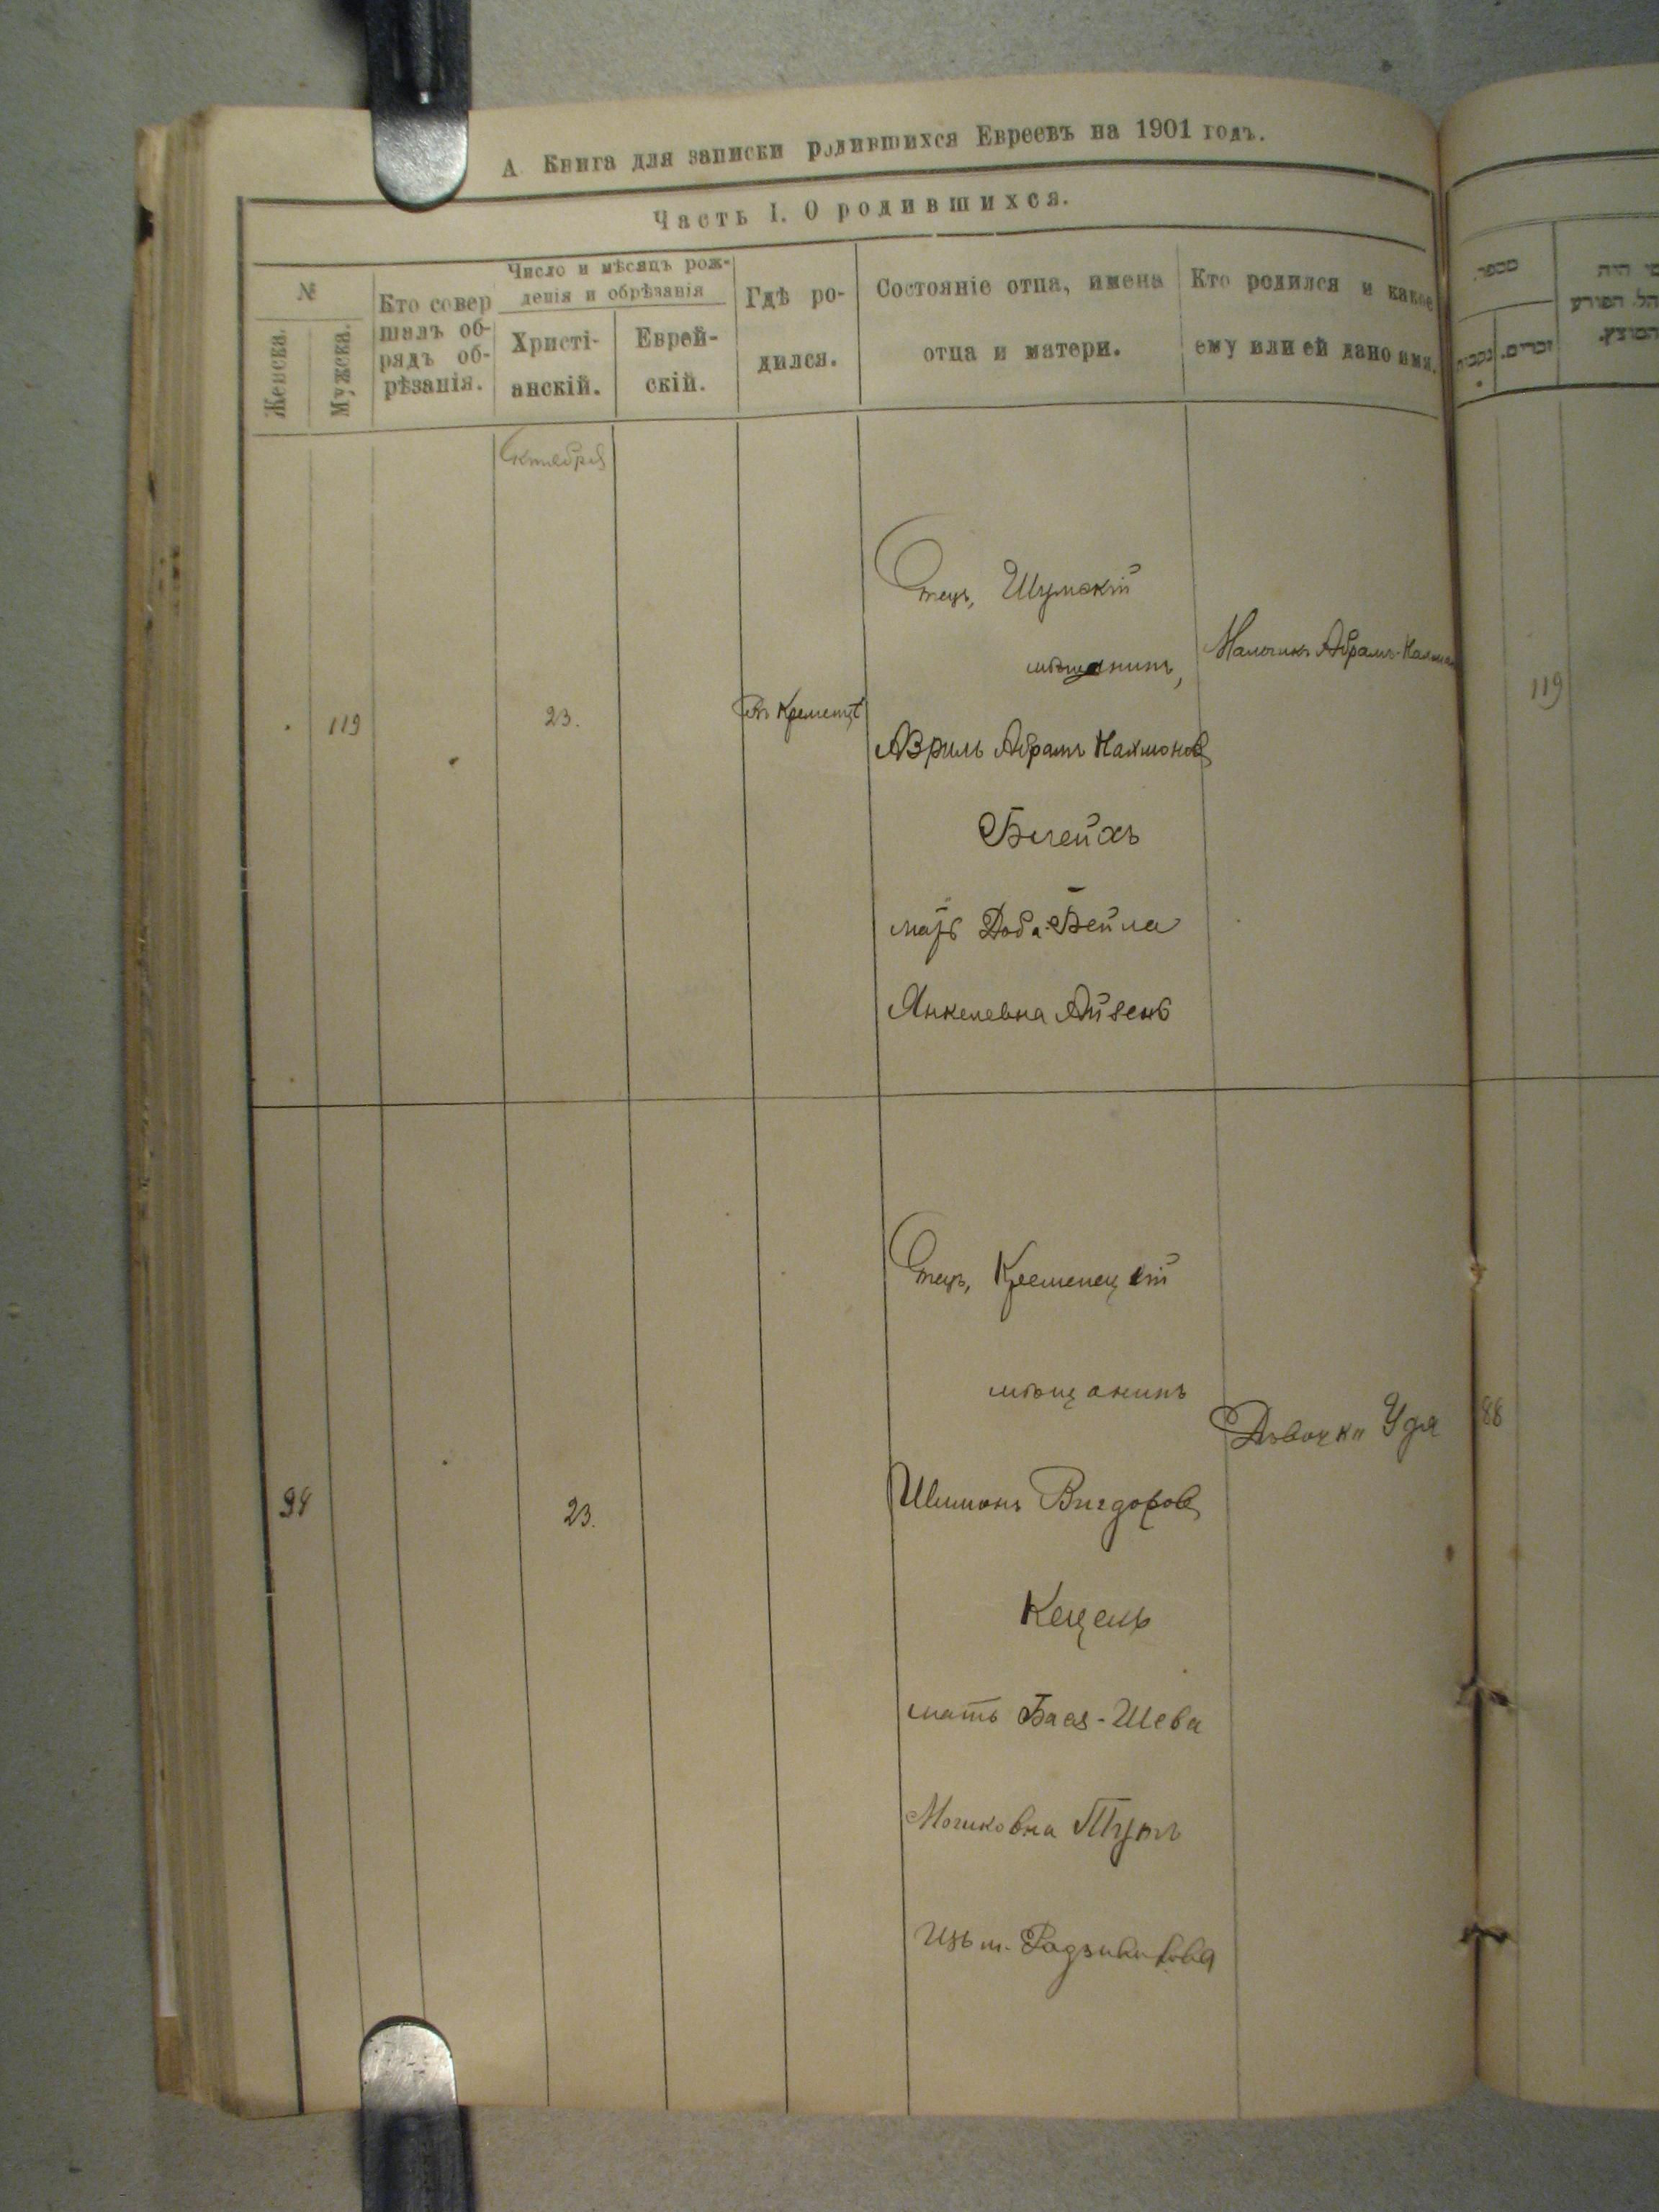 А Книга для записки родившихся Евреевъ на 1901 годъ.
Часть I. О родившихся.
№
Женска.
Мужска.
Кто совер
шалъ об-
рядъ об-
рѣзанія.
Число и мѣсяцъ рож-
денія и обрѣзанія
Христі-
анскій.
Еврей-
скій.
Гдѣ ро-
дился.
Состояніе отца, имена
отца и матери.
Кто родился и какое
ему или ей дано имя.
מספר.
נקבות
זכרים.
Октября
119
23.
Въ Кременцѣ
Отецъ, Шумскій
мѣщанинъ,
Азриль Абрамъ
Блейхъ
мать Доба-Бейла
Янкелевна Айзенб
Мальчикъ Абрамъ
119
94
23.
Отецъ, Кременецкій
мѣщанинъ
Шимонъ Вигдоров
Кецель
мать Бася-Шева
Мошковна
Изъ м. Радзивилова
Дѣвочка Удя
88